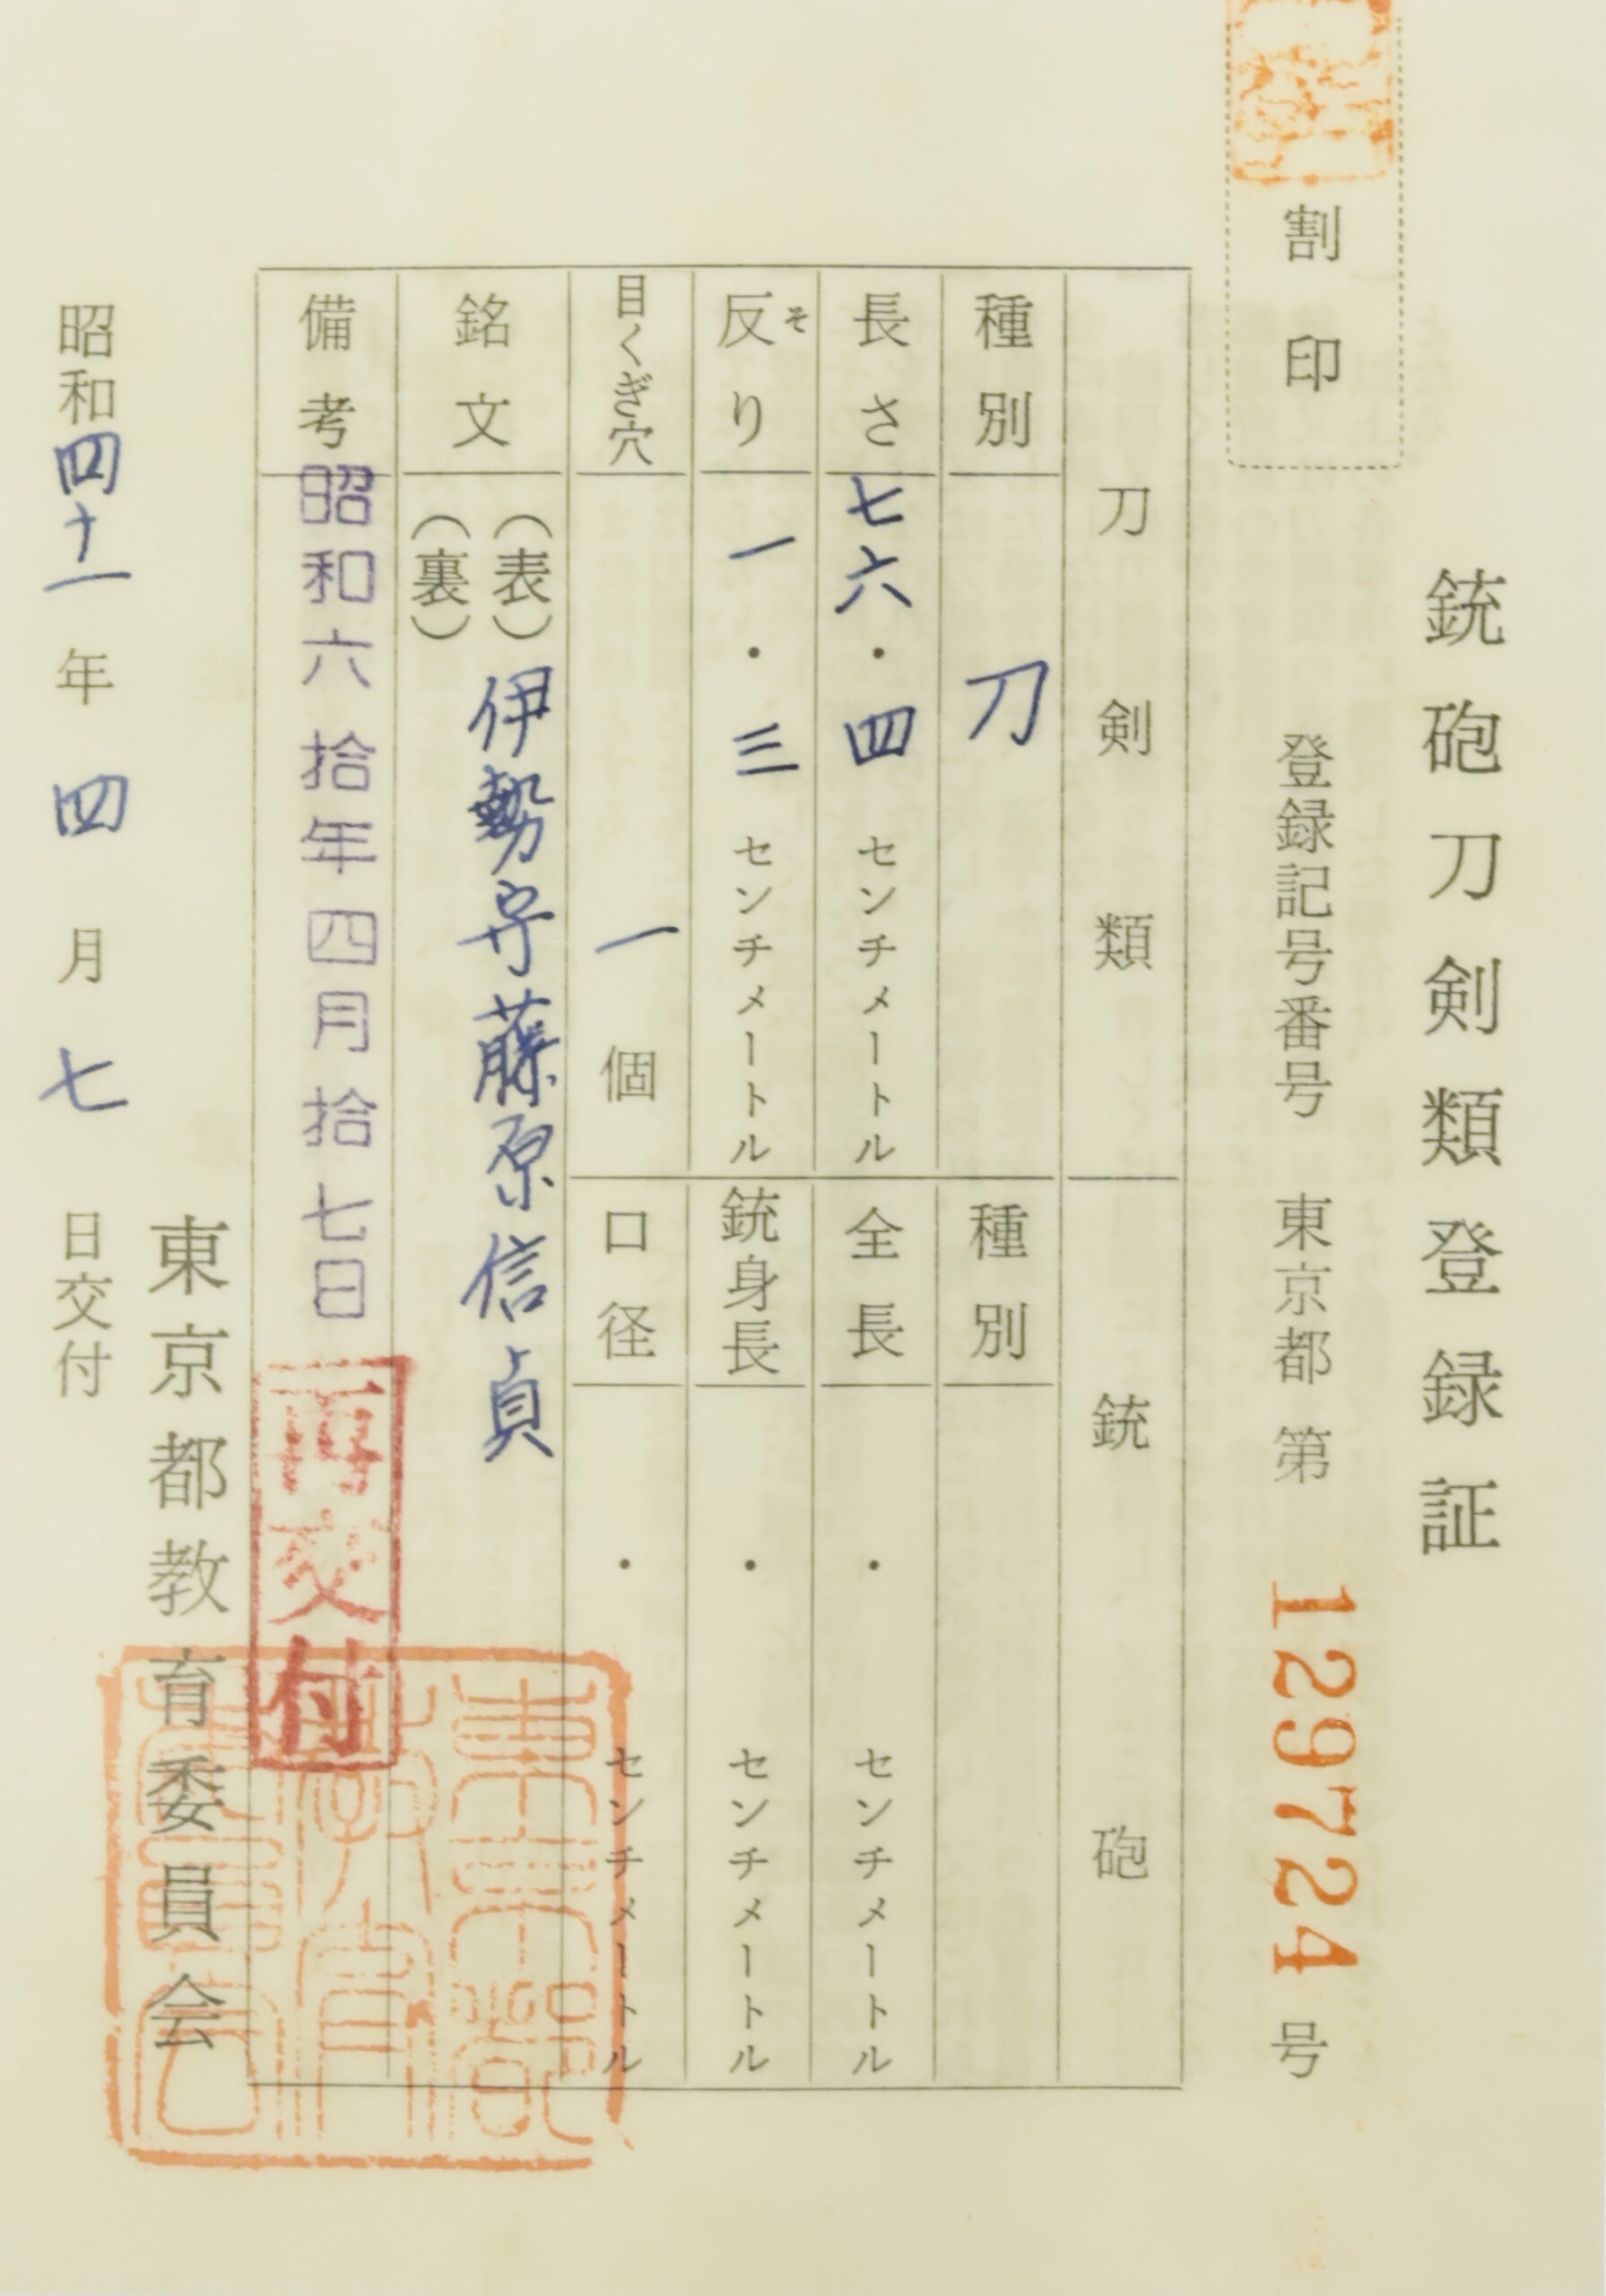 銃砲刀剣類登録証
割印
登録記号番号 東京都 第 129724 号
刀剣類
銃砲
種別 刀
種別
長さ 七六・四 センチメートル
全長 ・ センチメートル
反り そ 一・三 センチメートル
銃身長 ・ センチメートル
目くぎ穴 一個
口径 ・ センチメートル
銘文 (表) 伊勢守藤原信貞
(裏)
備考 昭和六拾年四月拾七日 再交付
東京都教育委員会
昭和四十一年四月七日交付